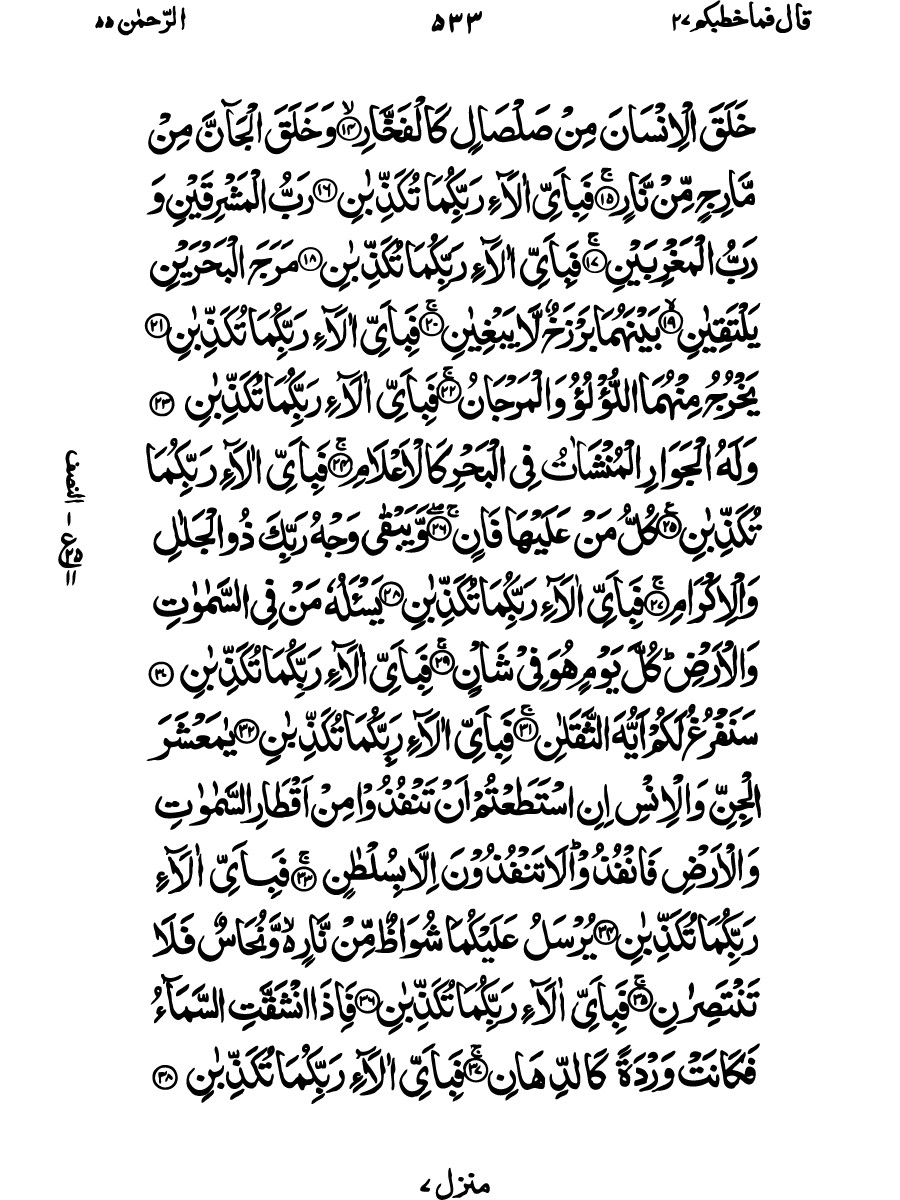 قال فماخطبكم ۲۷ ۵۳۳ الرّحمٰن ۵۵
خَلَقَ الْاِنْسَانَ مِنْ صَلْصَالٍ كَالْفَخَّارِۙ ﴿۱۴﴾ وَخَلَقَ الْجَآنَّ مِنْ
مَّارِجٍ مِّنْ نَّارٍۚ ﴿۱۵﴾ فَبِاَىِّ اٰلَآءِ رَبِّكُمَا تُكَذِّبٰنِ ﴿۱۶﴾ رَبُّ الْمَشْرِقَيْنِ وَ
رَبُّ الْمَغْرِبَيْنِۚ ﴿۱۷﴾ فَبِاَىِّ اٰلَآءِ رَبِّكُمَا تُكَذِّبٰنِ ﴿۱۸﴾ مَرَجَ الْبَحْرَيْنِ
يَلْتَقِيٰنِۙ ﴿۱۹﴾ بَيْنَهُمَا بَرْزَخٌ لَّا يَبْغِيٰنِۚ ﴿۲۰﴾ فَبِاَىِّ اٰلَآءِ رَبِّكُمَا تُكَذِّبٰنِ ﴿۲۱﴾
يَخْرُجُ مِنْهُمَا اللُّؤْلُؤُ وَالْمَرْجَانُۚ ﴿۲۲﴾ فَبِاَىِّ اٰلَآءِ رَبِّكُمَا تُكَذِّبٰنِ ﴿۲۳﴾
وَلَهُ الْجَوَارِ الْمُنْشَاٰتُ فِى الْبَحْرِ كَالْاَعْلَامِۚ ﴿۲۴﴾ فَبِاَىِّ اٰلَآءِ رَبِّكُمَا
تُكَذِّبٰنِ ﴿۲۵﴾ كُلُّ مَنْ عَلَيْهَا فَانٍۚ ﴿۲۶﴾ وَّيَبْقٰى وَجْهُ رَبِّكَ ذُو الْجَلٰلِ
وَالْاِكْرَامِۚ ﴿۲۷﴾ فَبِاَىِّ اٰلَآءِ رَبِّكُمَا تُكَذِّبٰنِ ﴿۲۸﴾ يَسْـَٔلُهٗ مَنْ فِى السَّمٰوٰتِ
وَالْاَرْضِؕ كُلَّ يَوْمٍ هُوَ فِىْ شَاْنٍۚ ﴿۲۹﴾ فَبِاَىِّ اٰلَآءِ رَبِّكُمَا تُكَذِّبٰنِ ﴿۳۰﴾
سَنَفْرُغُ لَكُمْ اَيُّهَ الثَّقَلٰنِۚ ﴿۳۱﴾ فَبِاَىِّ اٰلَآءِ رَبِّكُمَا تُكَذِّبٰنِ ﴿۳۲﴾ يٰمَعْشَرَ
الْجِنِّ وَالْاِنْسِ اِنِ اسْتَطَعْتُمْ اَنْ تَنْفُذُوْا مِنْ اَقْطَارِ السَّمٰوٰتِ
وَالْاَرْضِ فَانْفُذُوْاؕ لَا تَنْفُذُوْنَ اِلَّا بِسُلْطٰنٍۚ ﴿۳۳﴾ فَبِاَىِّ اٰلَآءِ
رَبِّكُمَا تُكَذِّبٰنِ ﴿۳۴﴾ يُرْسَلُ عَلَيْكُمَا شُوَاظٌ مِّنْ نَّارٍ ۙ وَّنُحَاسٌ فَلَا
تَنْتَصِرٰنِۚ ﴿۳۵﴾ فَبِاَىِّ اٰلَآءِ رَبِّكُمَا تُكَذِّبٰنِ ﴿۳۶﴾ فَاِذَا انْشَقَّتِ السَّمَآءُ
فَكَانَتْ وَرْدَةً كَالدِّهَانِۚ ﴿۳۷﴾ فَبِاَىِّ اٰلَآءِ رَبِّكُمَا تُكَذِّبٰنِ ﴿۳۸﴾
النصف
منزل ۷